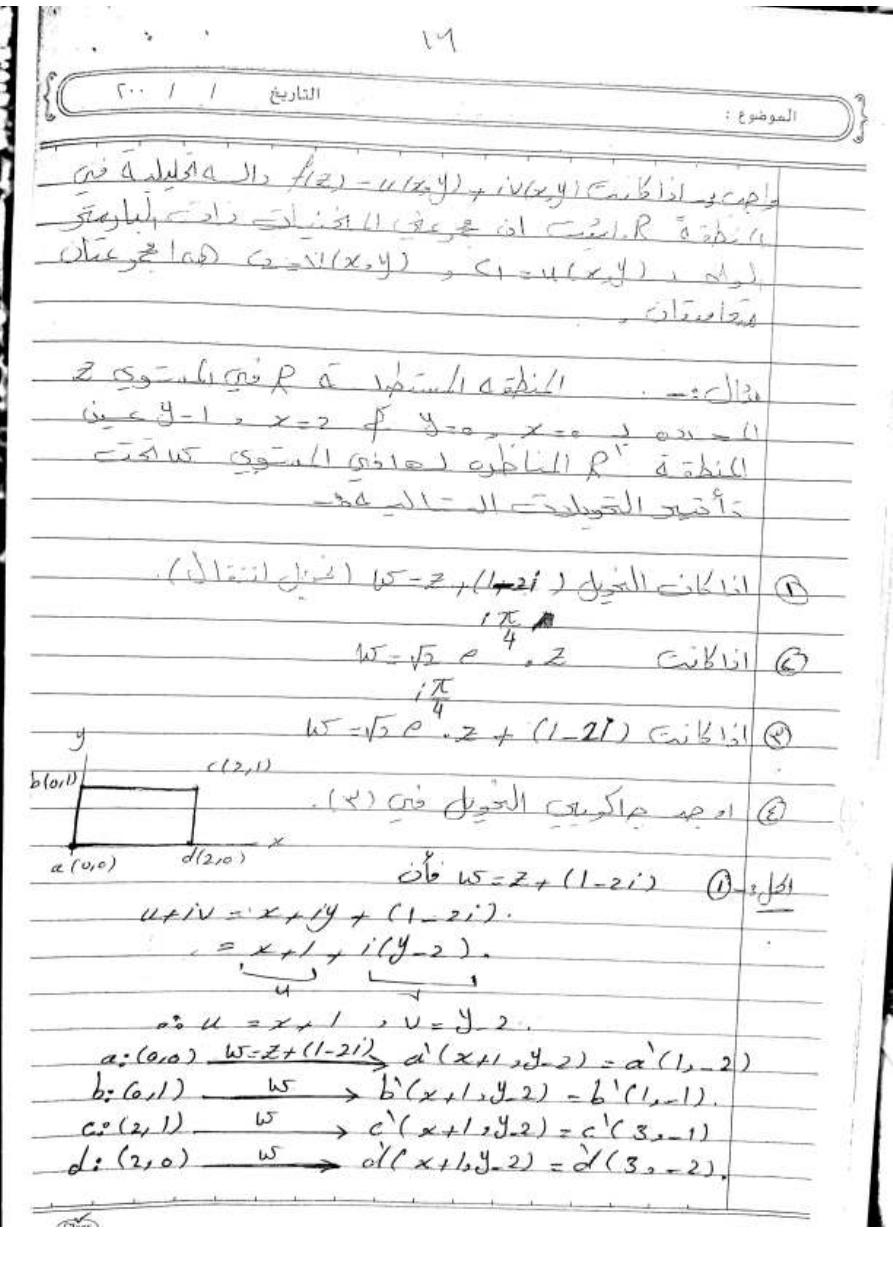 ١٦
التاريخ / / ٢٠٠
الموضوع :
واجب :- اذا كانت f(z) = u(x,y) + iv(x,y) دالة تحليلية في
المنطقة R. اثبت ان مجموعتي المنحنيات ذات البارمتر
c1 = u(x,y) , c2 = v(x,y) هما مجموعتان
متعامدتان .
مثال :- المنطقه المستطيلة R في المستوي z
المحدده بـ x=0 , y=0 , x=2 , y=1 عين
المنطقة R' المناظره لها في المستوي w تحت
تأثير التحويلات التالية :-
① اذا كان التحويل w = z + (1-2i) (تحويل انتقال).
② اذا كانت w = √2 e^{iπ/4} . z
③ اذا كانت w = √2 e^{iπ/4} . z + (1-2i)
④ اوجد جاكوبي التحويل في (٣).
y
b(0,1)
c(2,1)
x
a(0,0)
d(2,0)
الحل :- ① w = z + (1-2i) فأن
u+iv = x+iy + (1-2i).
= x+1 + i(y-2).
u v
∴ u = x+1 , v = y-2.
a: (0,0) w=z+(1-2i) → a'(x+1, y-2) = a'(1,-2)
b: (0,1) w → b'(x+1, y-2) = b'(1,-1).
c: (2,1) w → c'(x+1, y-2) = c'(3,-1)
d: (2,0) w → d'(x+1, y-2) = d'(3,-2).